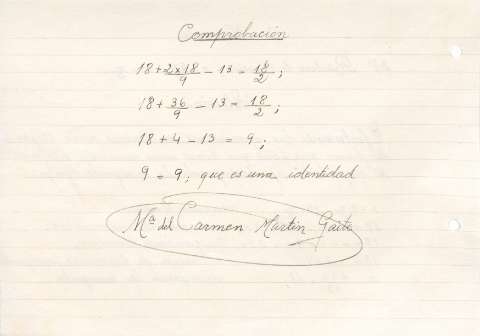 Comprobación
18 + 2x18/9 - 13 = 18/2;
18 + 36/9 - 13 = 18/2;
18 + 4 - 13 = 9;
9 = 9; que es una identidad
Mª del Carmen Martin Gaite